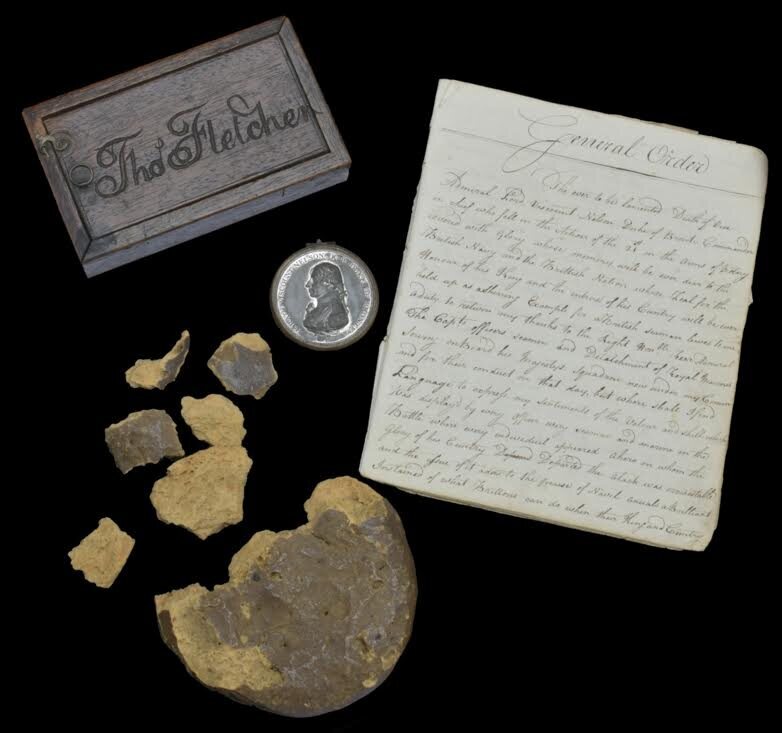 Tho.s Fletcher
General Order
The ever to be lamented Death of Vice
Admiral Lord Viscount Nelson Duke of Bronte Commander
in Chief who fell in the Action of the 21st in the Arms of Victory
covered with Glory whose memory will be ever dear to the
British Navy and the Brittish Nation whose Zeal for the
Honour of his King and the interest of his Country will be ever
held up as a shining Example for a Brittish seaman leaves to me
a duty to return my thanks to the Right Honble Rear Admiral
The Capts officers seamen and Detatchment of Royal Marines
serving on Board his Majestys Squadron now under my Command
and for their conduct on that day, but where shall I find
Language to express my sentiments of the Valour and skill which
Was display'd by every officer every seaman and marine in the
Battle where every individual appeared a hero on whom the
Glory of his Country Depended the attack was irresistible
and the Issue of it adds to the page of Naval annals a Brilliant
Instance of what Brittons can do when their King and Country